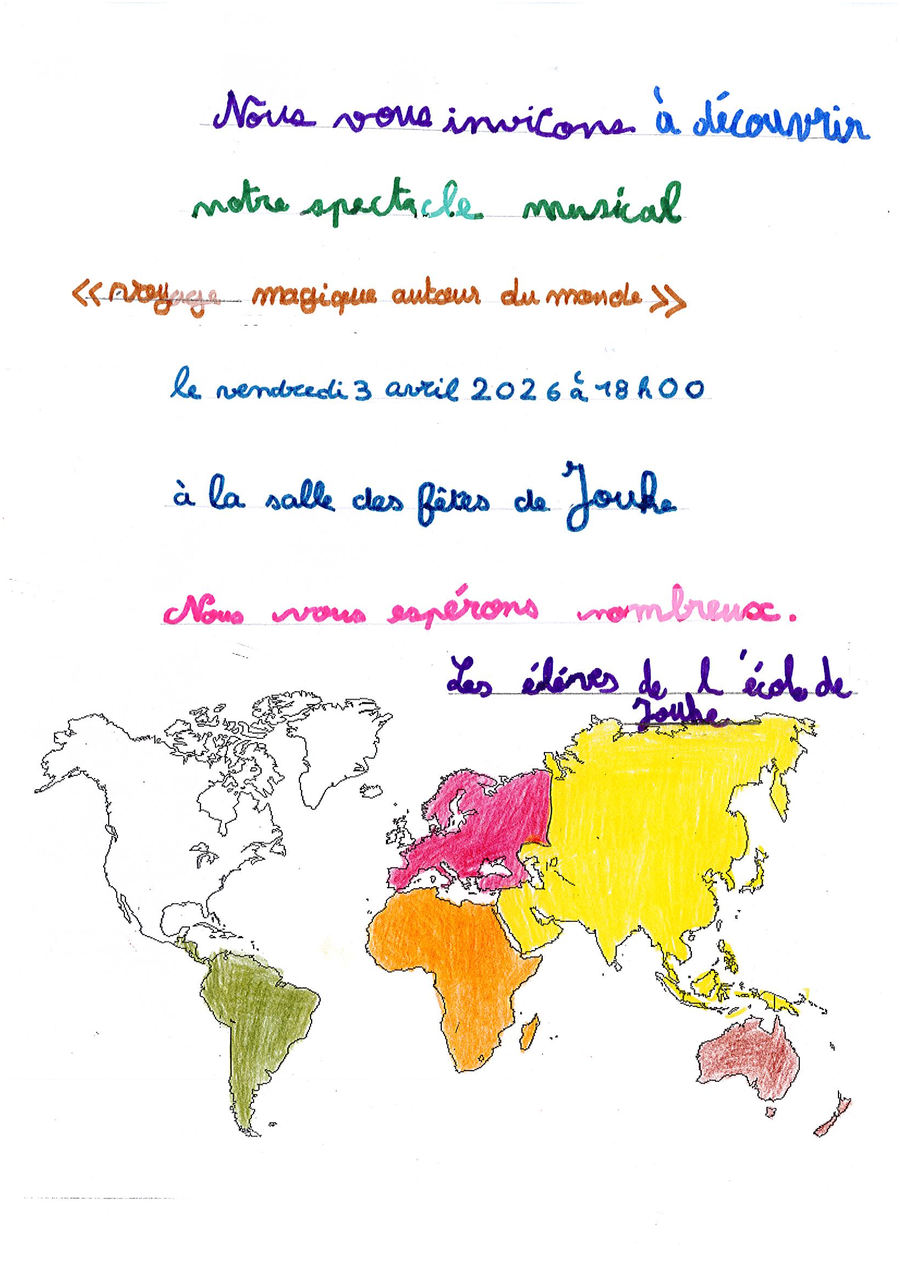 Nous vous invitons à découvrir
notre spectacle musical
<< voyage magique autour du monde >>
le vendredi 3 avril 2026 à 18h00
à la salle des fêtes de Jouhe
Nous vous espérons nombreux.
Les élèves de l'école de
Jouhe